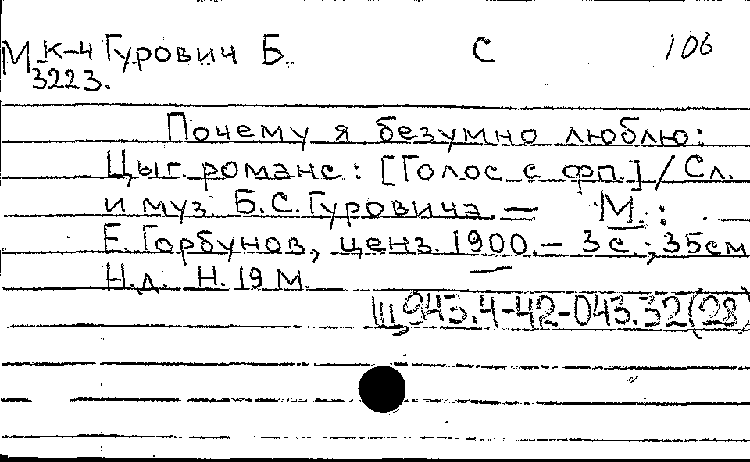 М К-4 Гурович Б. С 106
3223.
Почему я безумно люблю:
Цыг. романс: [Голос с фп.] / Сл.
и муз. Б.С. Гуровича. — М.:
Е. Горбунов, ценз. 1900. — 3 с.; 35 см
Н.д. Н. 19 М.
Щ 943.4-42-043.32(28)